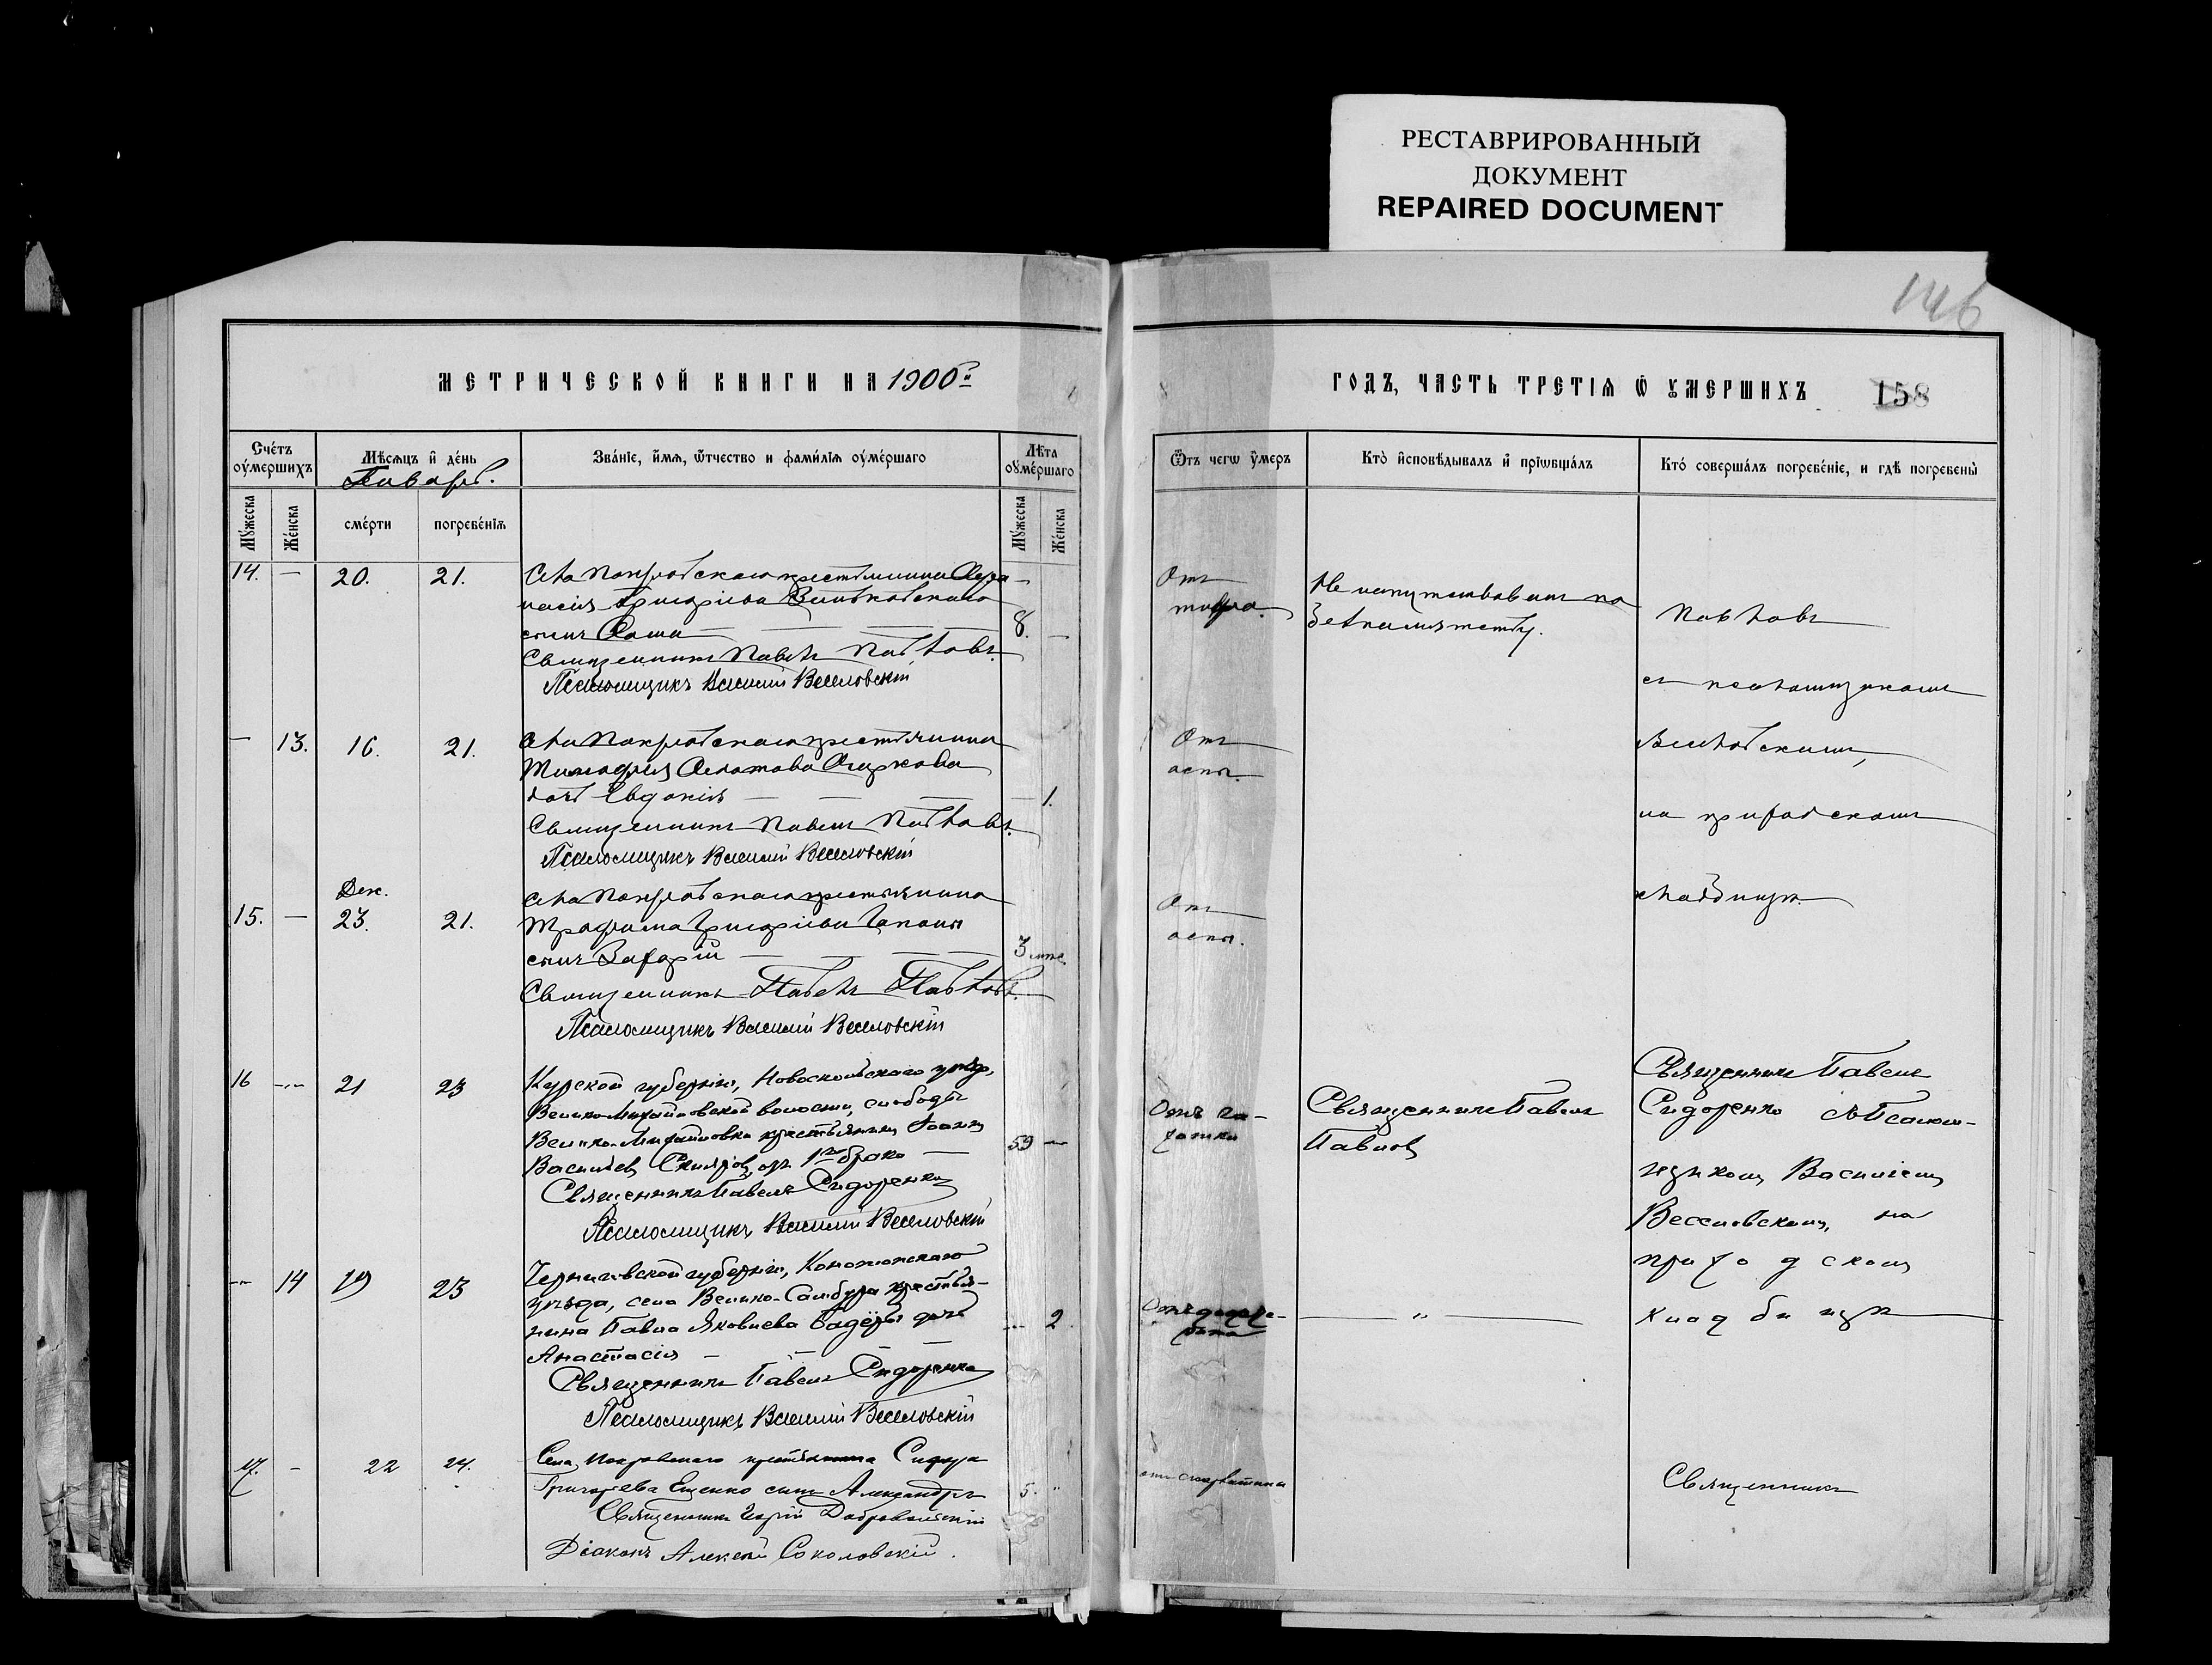 РЕСТАВРИРОВАННЫЙ
ДОКУМЕНТ
REPAIRED DOCUMENT
146
МЕТРИЧЕСКОЙ КНИГИ НА 1900й
ГОДЪ, ЧАСТЬ ТРЕТІѦ Ѿ ОУМЕРШИХЪ 158
Счетъ оумершихъ
Мѣсяцъ и день
Январь.
Званіе, имя, ѿтчество и фамилія оумершаго
Лѣта оумершаго
Мужеска
Женска
смерти
погребенія
Мужеска
Женска
Ѿтъ чегѡ умеръ
Кто исповѣдывалъ и пріѡбщалъ
Кто совершалъ погребеніе, и гдѣ погребены
14. — 20. 21.
Села Покровскаго крестьянина Афа-
насія Григоріева
сынъ — — — 8. —
Священникъ Павелъ Павловъ.
Псаломщикъ Василій Веселовскій
Отъ
тифа.
Не напутствованъ по
Павловъ
съ псаломщикомъ
— 13. 16. 21.
Села Покровскаго крестьянина
Тимофея
дочь Евдокія — — — — 1.
Священникъ Павелъ Павловъ.
Псаломщикъ Василій Веселовскій
Отъ
оспы.
Веселовскимъ,
на приходскомъ
Дек.
15. — 23. 21.
Села Покровскаго крестьянина
Трофима Григоріева
сынъ Захарій — — — 3
Священникъ Павелъ Павловъ.
Псаломщикъ Василій Веселовскій
Отъ
оспы.
кладбищѣ.
16 -„- 21 23
Курской губерніи, Новооскольскаго уѣзда,
Велико-Михайловской волости, слободы
Велико-Михайловки крестьянинъ Іоаннъ
Васильевъ Скляровъ, 1мъ бракѣ — 59 —
Священникъ Павелъ Сидоренко
Псаломщикъ Василій Веселовскій
Отъ ча-
хотки
Священникъ Павелъ
Павлов
Священникъ Павелъ
Сидоренко съ Псалом-
щикомъ Василіемъ
Веселовскимъ, на
приходскомъ
кладбищѣ
-„- 14 19 23
Черниговской губерніи, Конотопскаго
уѣзда, села Велико-Самбура крестья-
нина Павла Яковлева дочь
Анастасія — — — 2
Священникъ Павелъ Сидоренко
Псаломщикъ Василій Веселовскій
— „ —
17. - 22 24.
Села Покровскаго крестьянина Сидора
Григорьева Ещенко сынъ Александръ 5. „
Священникъ Георгій Добровольскій
Діаконъ Алексѣй Соколовскій.
отъ скарлатины
Священникъ